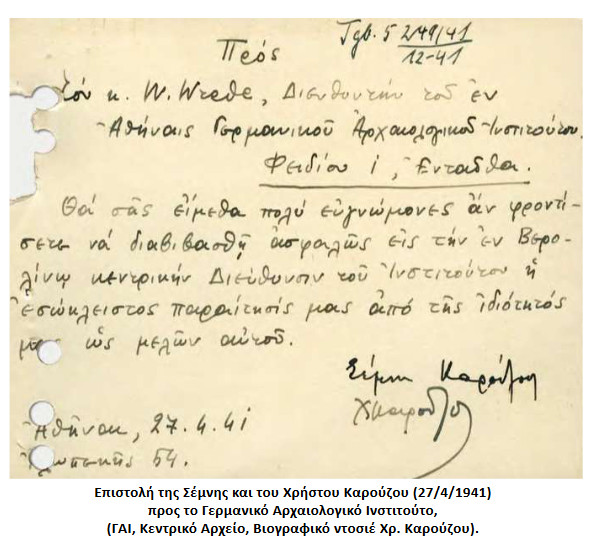 Πρὸς
Tgb. 5 249/41
12-41
Τὸν κ. W. Wrede, Διευθυντὴν τοῦ ἐν
Ἀθήναις Γερμανικοῦ Ἀρχαιολογικοῦ Ἰνστιτούτου.
Φειδίου 1, Ἐνταῦθα.
Θά σᾶς εἴμεθα πολὺ εὐγνώμονες ἄν φροντί-
σετε νά διαβιβασθῇ ἀσφαλῶς εἰς τήν ἐν Βερο-
λίνῳ κεντρικήν Διεύθυνσιν τοῦ Ἰνστιτούτου ἡ
ἐσώκλειστος παραίτησίς μας ἀπό τῆς ἰδιότητός
μας ὡς μελῶν αὐτοῦ.
Σέμνη Καρούζου
ΧΚαρούζος
Ἀθῆναι, 27.4.41
Ἀλωπεκῆς 54.
Επιστολή της Σέμνης και του Χρήστου Καρούζου (27/4/1941)
προς το Γερμανικό Αρχαιολογικό Ινστιτούτο,
(ΓΑΙ, Κεντρικό Αρχείο, Βιογραφικό ντοσιέ Χρ. Καρούζου).